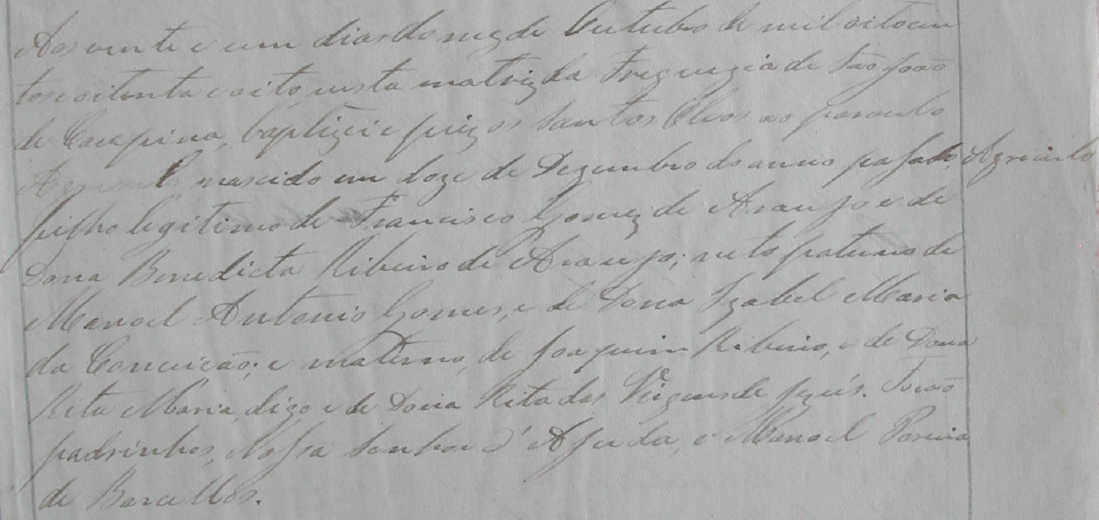 Aos vinte e um dias do mez de Outubro de mil oitocen
tos e oitenta e oito nesta matriz da Freguezia de São João
de baptizei e puz os Santos Oleos ao parvulo
Agricolo nascido em doze de Dezembro do anno passado, Agricolo
filho legitimo de Francisco Gomez de Araujo e de
Dona Benedicta Ribeiro de Araujo; neto paterno de
Manoel Antonio Gomes, e de Dona Izabel Maria
da Conceição; e materno, de Joaquim Ribeiro, e de Dona
Rita Maria, digo e de Dona Rita das Virgens de Jezús. Forão
padrinhos, Nossa Senhora d'Ajuda, e Manoel Pereira
de Barcellos.